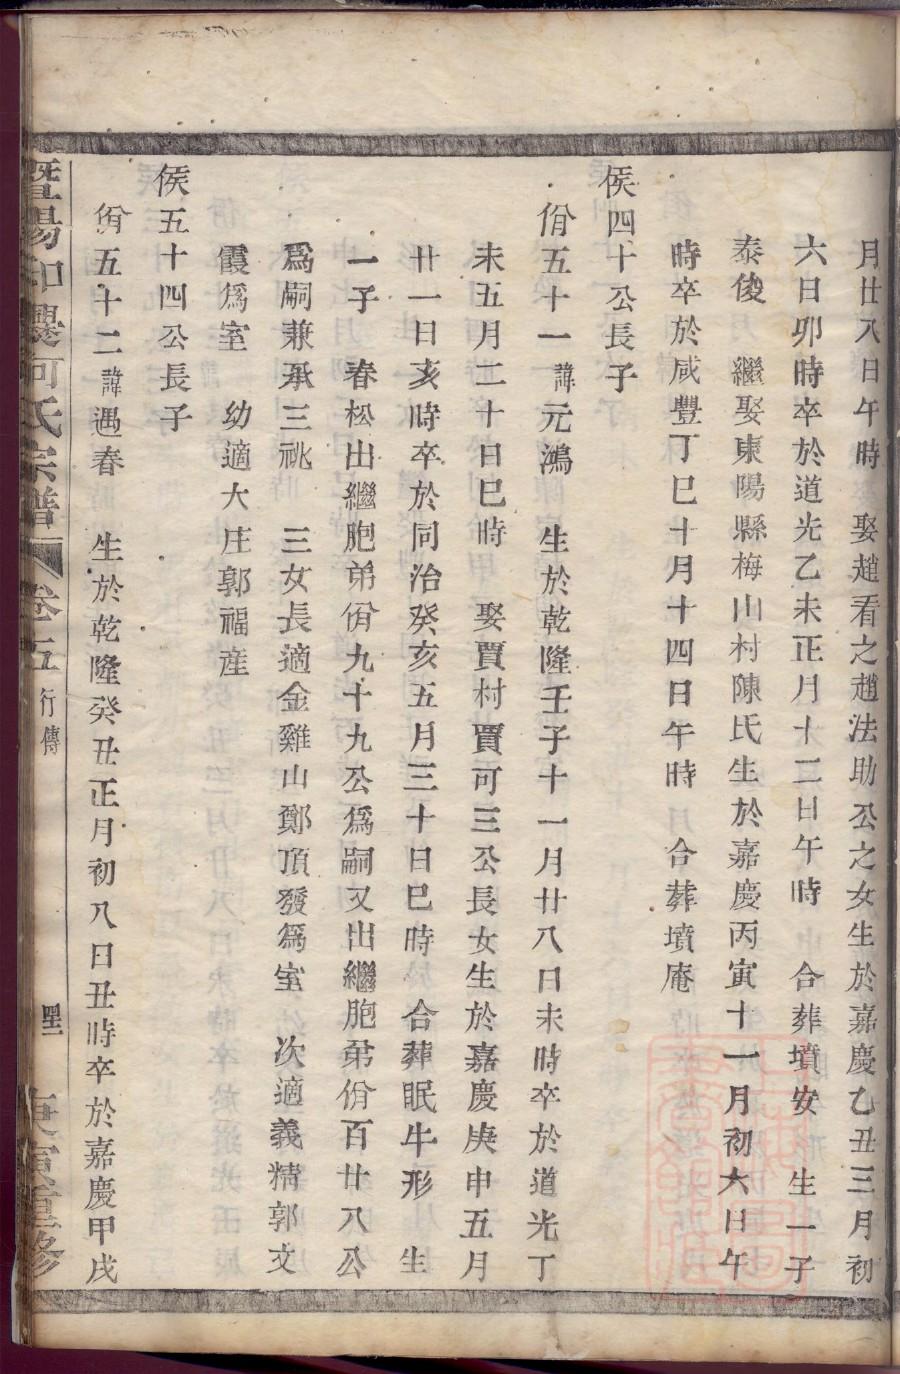 月廿八日午時　娶趙看之趙法助公之女生於嘉慶乙丑三月初
六日卯時卒於道光乙未正月十二日午時　合葬墳安　生一子
泰俊　繼娶東陽縣梅山村陳氏生於嘉慶丙寅十一月初六日午
時卒於咸豐丁巳十月十四日午時　合葬墳庵
侯四十公長子
佾五十一諱元鴻　生於乾隆壬子十一月廿八日未時卒於道光丁
未五月二十日巳時　娶賈村賈可三公長女生於嘉慶庚申五月
廿一日亥時卒於同治癸亥五月三十日巳時　合葬眠牛形　生
一子　春松出繼胞弟佾九十九公爲嗣又出繼胞弟佾百廿八公
爲嗣兼承三祧　三女長適金雞山鄭頂發爲室　次適義精郭文
霞爲室　幼適大庄郭福産
侯五十四公長子
佾五十二諱遇春　生於乾隆癸丑正月初八日丑時卒於嘉慶甲戌
暨陽　何氏宗譜　卷五　行傳　庚寅重修